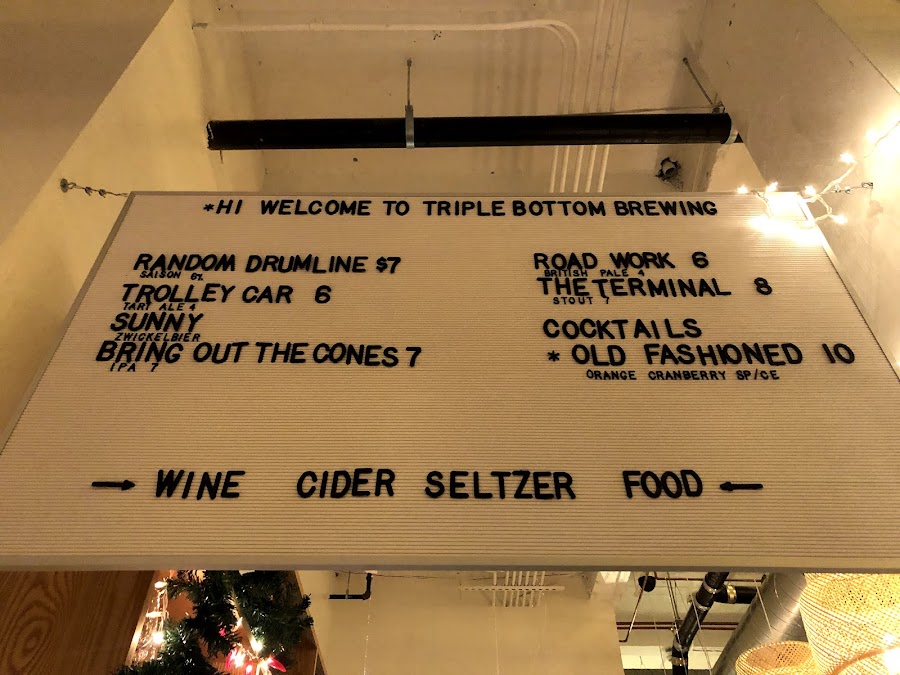 *HI WELCOME TO TRIPLE BOTTOM BREWING
RANDOM DRUMLINE $7
SAISON 6%
TROLLEY CAR 6
TART ALE 4
SUNNY
ZWICKELBIER
BRING OUT THE CONES 7
IPA 7
ROAD WORK 6
BRITISH PALE 4
THE TERMINAL 8
STOUT 7
COCKTAILS
* OLD FASHIONED 10
ORANGE CRANBERRY SP/CE
→ WINE CIDER SELTZER FOOD ←